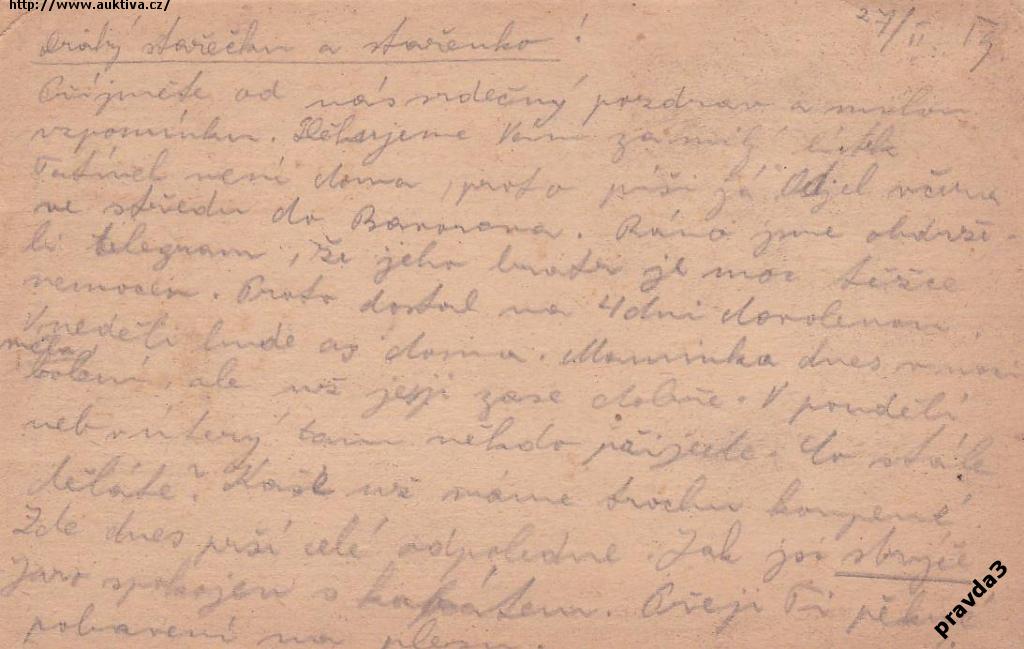 http://www.auktiva.cz/
27/II. 19
Drahý stařečku a stařenko!
Přijměte od nás srdečný pozdrav a milou
vzpomínku. Děkujeme Vám za milý lístek
Tatínek není doma, proto píši já. Odjel včera
ve středu do Bavorova. Ráno jsme obdrže-
li telegram, že jeho bratr je moc těžce
nemocen. Proto dostal na 4 dni dovolenou.
V neděli bude as doma. Maminka dnes v noci
měla bolení, ale už jejji zase dobře. V pondělí
neb v úterý tam někdo přijede. Co stále
děláte? Kaší už máme trochu koupené
Zde dnes prší celé odpoledne. Jak jsi strýče
Jaro spokojen s kabátem. Přeji Ti pěkné
pobavení na plesu.
pravda3